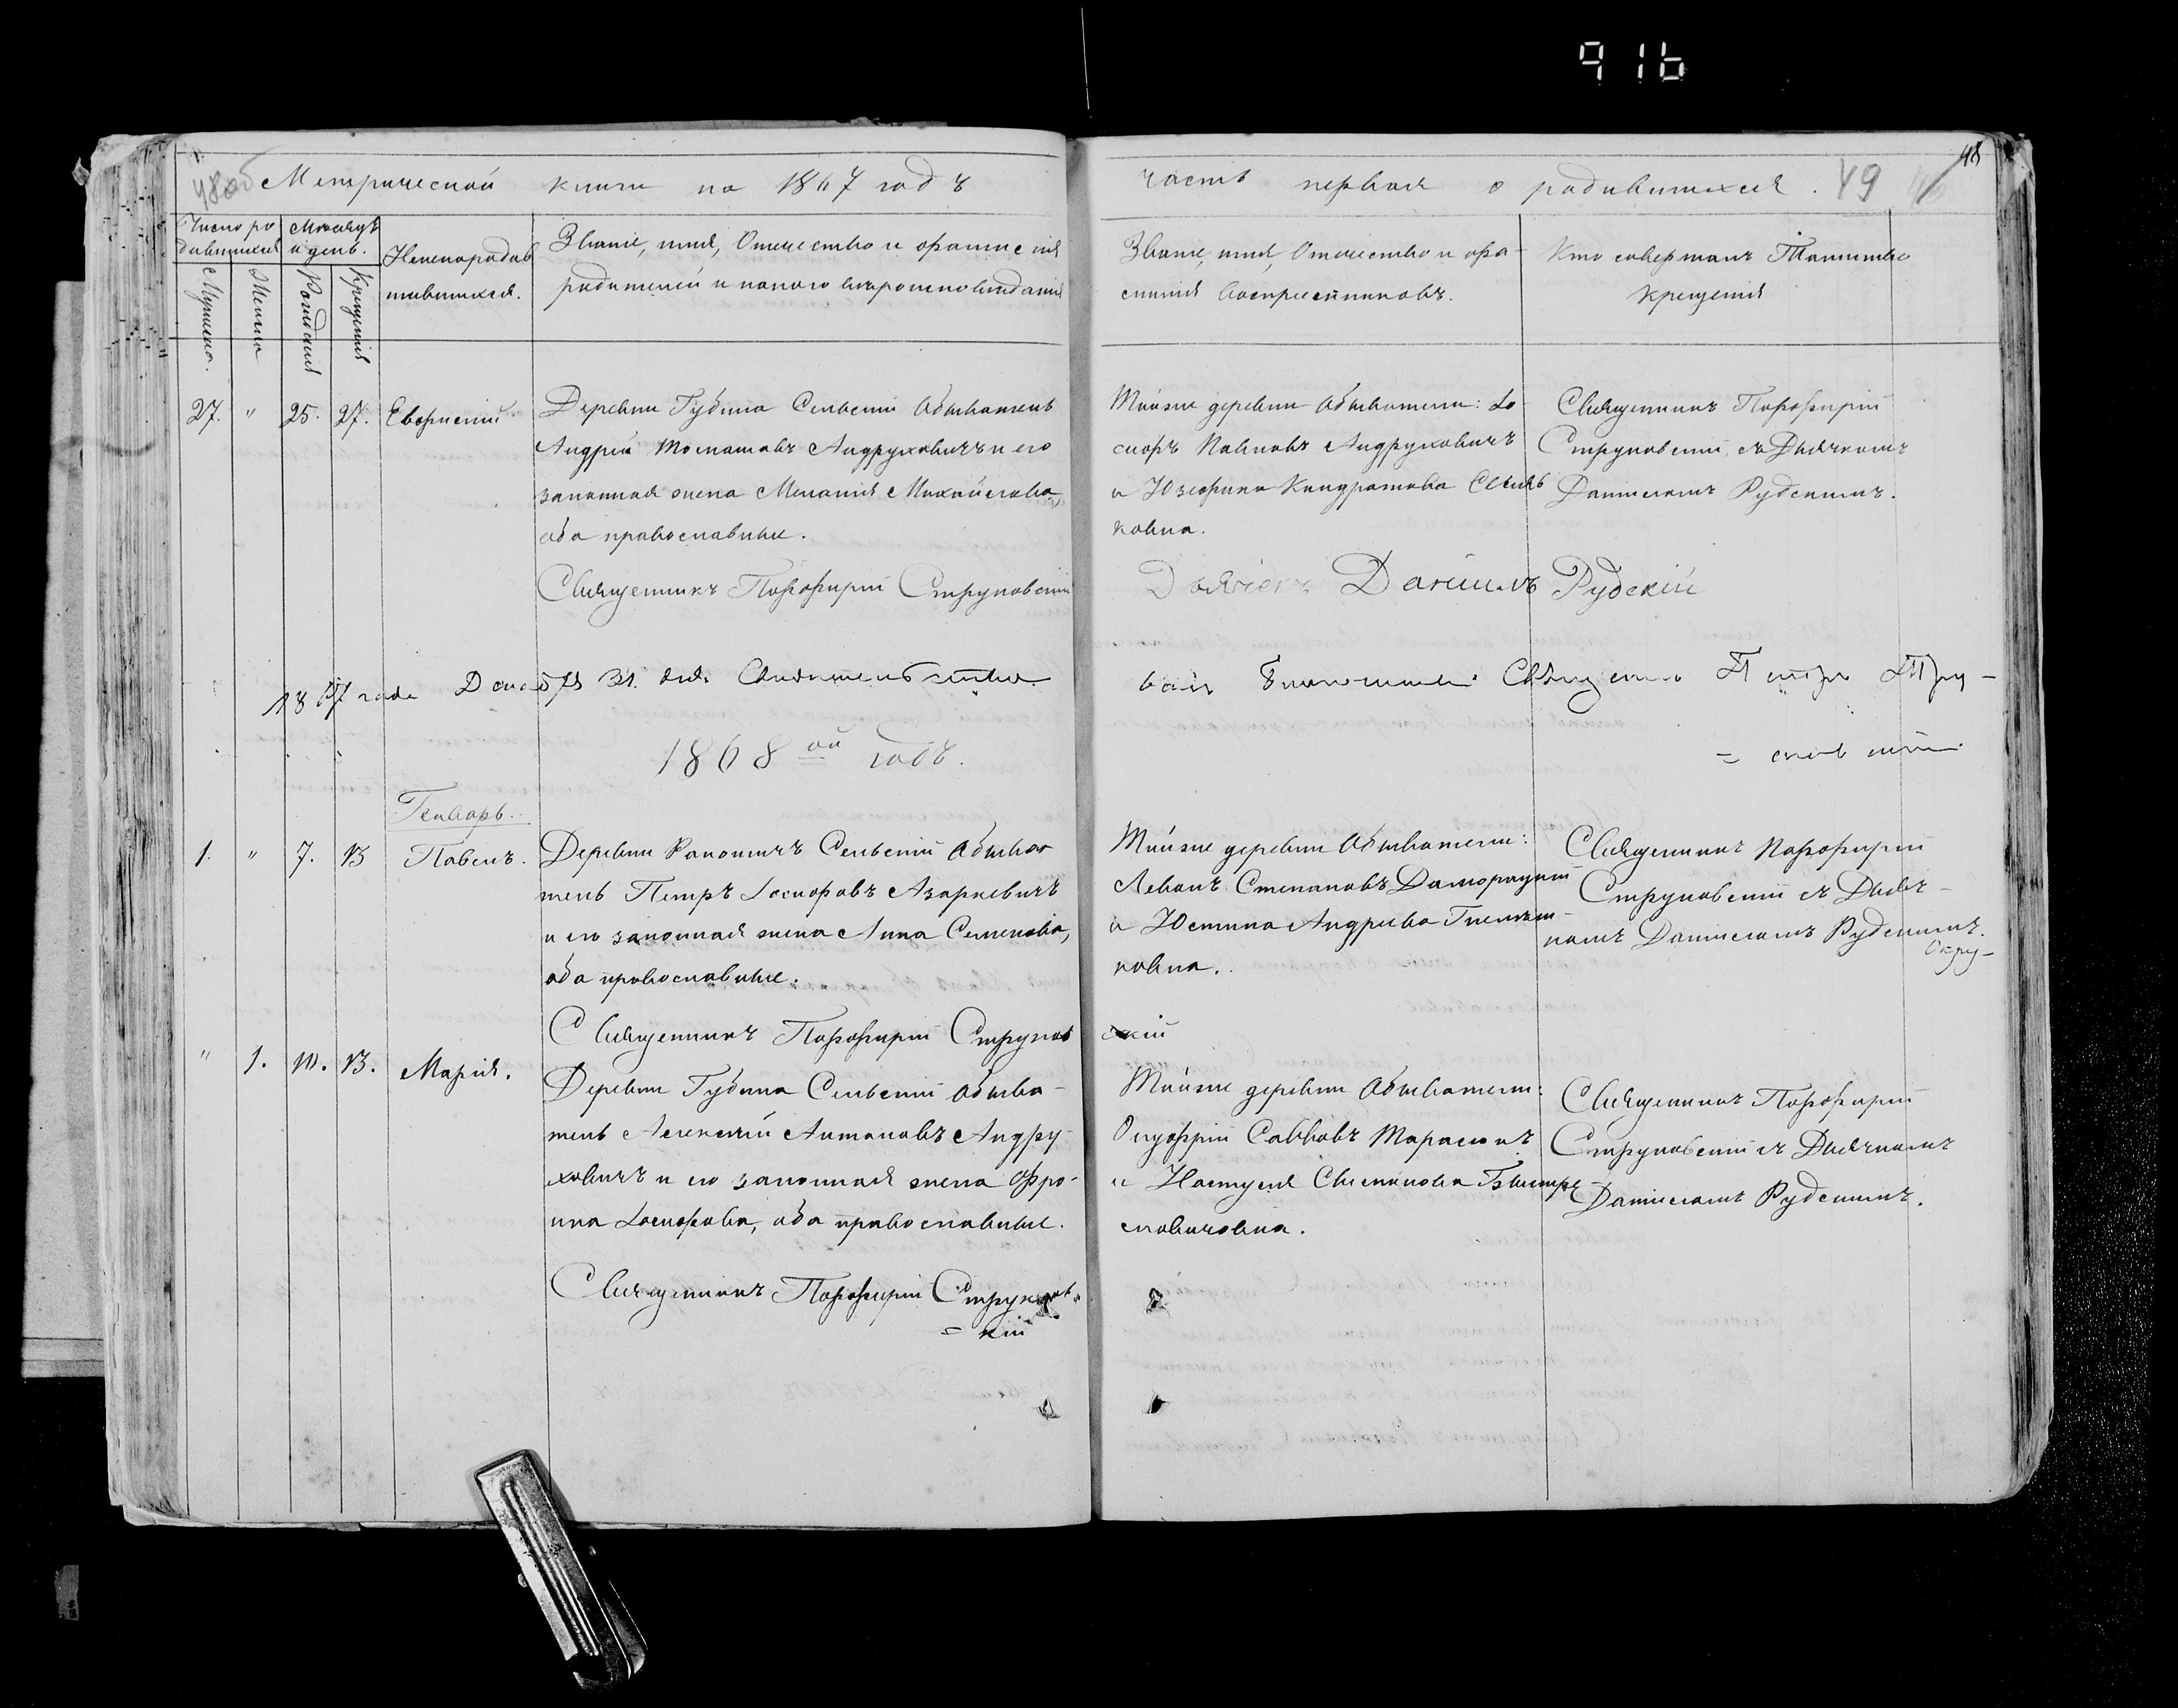 916
48об Метрической книги на 1867 годъ
часть первая о родившихся. 49
48
Число ро
дившихся
Месяцъ
и день.
Мужеска.
Женска
Рожденія
Крещенія
Имена родив
шившихся.
Званіе, имя, Отечество и фамилія
родителей и какого вѣроисповѣданія
Званіе, имя, Отечество и фа-
милія воспріемниковъ.
Кто совершалъ Таинство
Крещенія
27. " 25. 27. Евфиміій
Деревни Губина Сельскій Обыватель
Андрей Игнатовъ Андруховичъ и его
законная жена Меланія Михайлова,
оба православные.
Священникъ Порфирій Струковскій
Тойже деревни Обыватели: Іо
сифъ Павловъ Андруховичъ
и Юзефина Кондратова
ковна.
Священникъ Порфирій
Струковскій съ Дьячкомъ
Даниломъ Рудскимъ.
Дьячекъ Даніилъ Рудскій
1867 года Декабря 31. дня Свидетельство
валъ Благочинный Священникъ Петръ
1868ой годъ.
Генварь.
1. " 7. 13 Павелъ.
Деревни Сельскій Обыва
тель Петръ Іосифовъ Азаркевичъ
и его законная жена Анна Семенова,
оба православные.
Священникъ Порфирій Струков
скій
Тойже деревни Обыватели:
Леонъ Степановъ Доморацкій
и Юстина Андреева
ковна.
Священникъ Порфирій
Струковскій съ Дьяч-
комъ Даниломъ Рудскимъ.
" 1. 10. 13. Марія.
Деревни Губина Сельскій Обыва-
тель Алексѣй Антоновъ Андру-
ховичъ и его законная жена Фро-
ина Іосифова, оба православные.
Священникъ Порфирій Струков
= кій
Тойже деревни Обыватели:
Онуфрій Савковъ Тарасюкъ
и Настусія
славичовна.
Священникъ Порфирій
Струковскій съ Дьячкомъ
Даниломъ Рудскимъ.